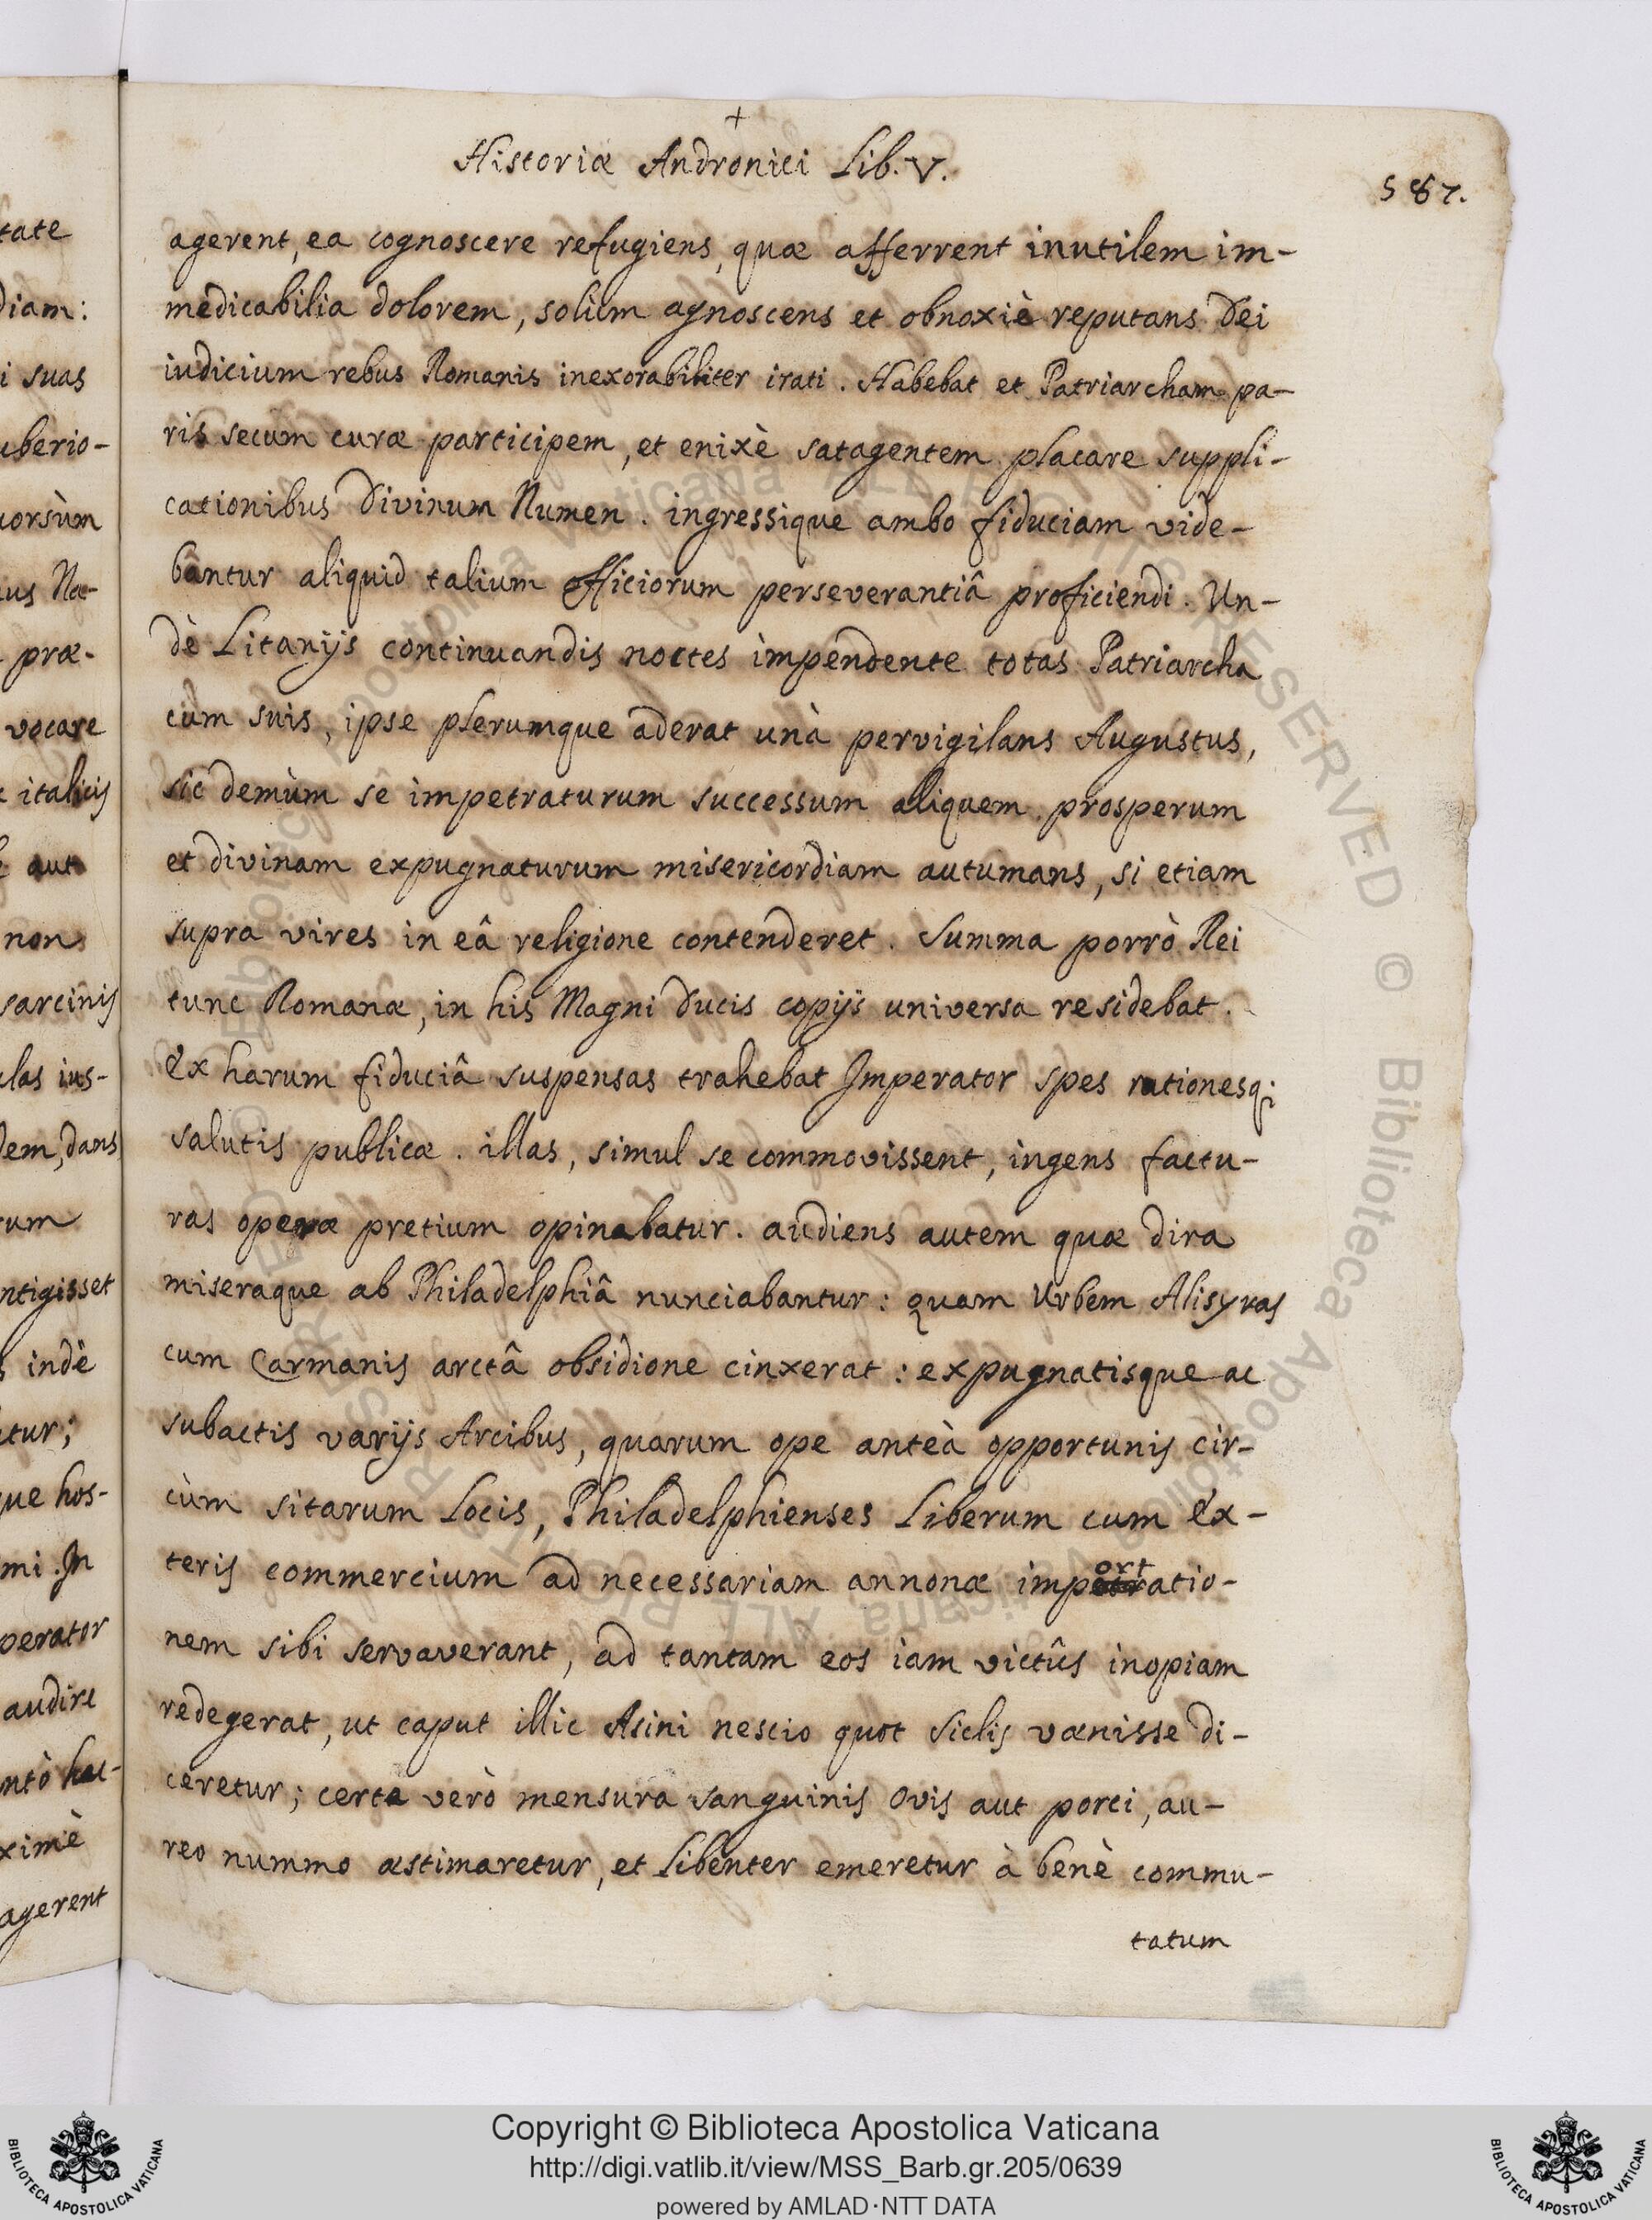 +
Historiæ Andronici Lib. V.
587.
agerent, ea cognoscere refugiens, quæ afferrent inutilem im-
medicabilia dolorem, solùm agnoscens et obnoxiè reputans Dei
iudicium rebus Romanis inexorabiliter irati. Habebat et Patriarcham pa-
ris secum curæ participem, et enixè satagentem placare suppli-
cationibus Divinum Numen. ingressique ambo fiduciam vide-
bantur aliquid talium officiorum perseverantiâ proficiendi. Un-
dè Litanijs continuandis noctes impendente totas Patriarcha
cum suis, ipse plerumque aderat unà pervigilans Augustus,
sic demùm se impetraturum successum aliquem prosperum
et divinam expugnaturum misericordiam autumans, si etiam
supra vires in eâ religione contenderet. Summa porrò Rei
tunc Romanæ, in his Magni Ducis copijs universa residebat.
Ex harum fiduciâ suspensas trahebat Imperator spes rationesq;
salutis publicæ. illas, simul se commovissent, ingens factu-
ras operæ pretium opinabatur. audiens autem quæ dira
miseraque ab Philadelphiâ nunciabantur: quam Urbem Alisyras
cum Carmanis arctâ obsidione cinxerat: expugnatisque ac
subactis varijs Arcibus, quarum ope anteà opportunis cir-
cùm sitarum Locis, Philadelphienses Liberum cum Ex-
teris commercium ad necessariam annonæ importatio-
nem sibi servaverant, ad tantam eos iam victûs inopiam
redegerat, ut caput illic Asini nescio quot Siclis vænisse di-
ceretur; certa verò mensura sanguinis Ovis aut porci, au-
reo nummo æstimaretur, et Libenter emeretur à benè commu-
tatum
tate
diam:
i suas
uberio-
uorsùm
us Na-
præ-
vocare
italicis
aut
non
sarcinis
las ius-
dem, dans
rum
ntigisset
indè
tur;
que hos-
mi. In
perator
audire
ntò hac-
ximè
agerent
© Biblioteca Apostolica Vaticana ALL RIGHTS RESERVED © Biblioteca Apostolica Vaticana ALL RIGHTS RESERVED
BIBLIOTECA APOSTOLICA VATICANA
Copyright © Biblioteca Apostolica Vaticana
http://digi.vatlib.it/view/MSS_Barb.gr.205/0639
powered by AMLAD·NTT DATA
BIBLIOTECA APOSTOLICA VATICANA